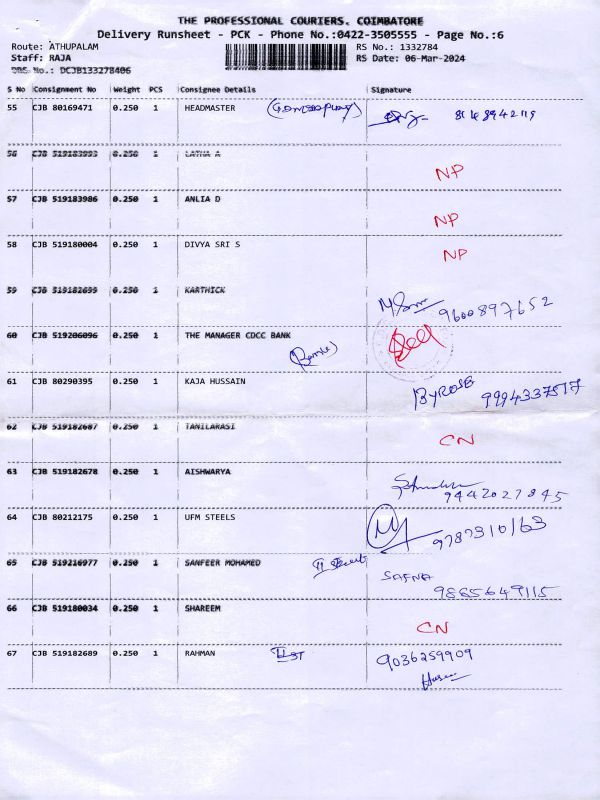 THE PROFESSIONAL COURIERS. COIMBATORE
Delivery Runsheet - PCK - Phone No.:0422-3505555 - Page No.:6
Route: ATHUPALAM RS No.: 1332784
Staff: RAJA RS Date: 06-Mar-2024
DRS No.: DCJB133278406
S No Consignment No Weight PCS Consignee Details Signature
55 CJB 80169471 0.250 1 HEADMASTER
56 CJB 519183993 0.250 1 LATHA A
NP
57 CJB 519183986 0.250 1 ANLIA D
NP
58 CJB 519180004 0.250 1 DIVYA SRI S
NP
59 CJB 519182699 0.250 1 KARTHICK
9600897652
60 CJB 519206096 0.250 1 THE MANAGER CDCC BANK
61 CJB 80290395 0.250 1 KAJA HUSSAIN
BYROSE 9994337517
62 CJB 519182687 0.250 1 TANILARASI
CN
63 CJB 519182678 0.250 1 AISHWARYA
9442027845
64 CJB 80212175 0.250 1 UFM STEELS
9787310163
65 CJB 519216977 0.250 1 SANFEER MOHAMED II Street
SAFNA
9865649115
66 CJB 519180034 0.250 1 SHAREEM
CN
67 CJB 519182689 0.250 1 RAHMAN II ST 9036259909